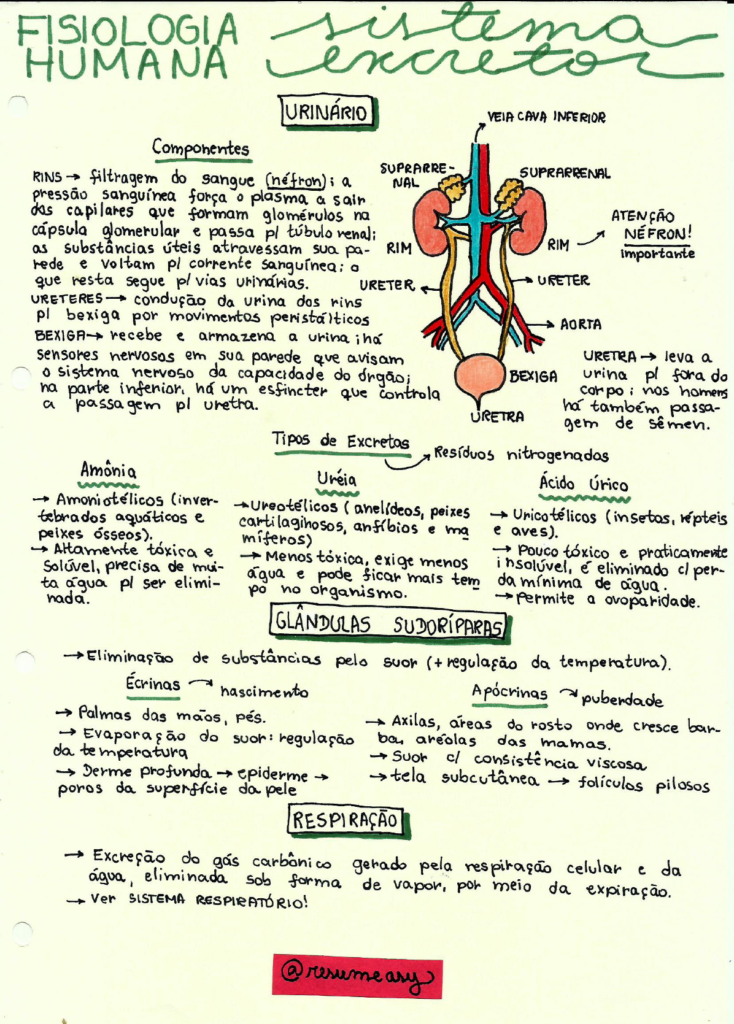 FISIOLOGIA
HUMANA
sistema
excretor
URINÁRIO
Componentes
RINS → filtragem do sangue (néfron); a
pressão sanguínea força o plasma a sair
das capilares que formam glomérulos na
cápsula glomerular e passa p/ túbulo renal;
as substâncias úteis atravessam sua pa-
rede e voltam p/ corrente sanguínea; o
que resta segue p/ vias urinárias.
URETERES → condução da urina dos rins
p/ bexiga por movimentos peristálticos
BEXIGA → recebe e armazena a urina; há
sensores nervosos em sua parede que avisam
o sistema nervoso da capacidade do órgão;
na parte inferior, há um esfíncter que controla
a passagem p/ uretra.
VEIA CAVA INFERIOR
SUPRARRE-
NAL
SUPRARRENAL
RIM
RIM
ATENÇÃO
NÉFRON!
importante
URETER
URETER
AORTA
BEXIGA
URETRA
URETRA → leva a
urina p/ fora do
corpo; nos homens
há também passa-
gem de sêmen.
Tipos de Excretas
Resíduos nitrogenados
Amônia
→ Amoniotélicos (inver-
tebrados aquáticos e
peixes ósseos).
→ Altamente tóxica e
solúvel, precisa de mui-
ta água p/ ser elimi-
nada.
Uréia
→ Ureotélicos (anelídeos, peixes
cartilaginosos, anfíbios e ma
míferos)
→ Menos tóxica, exige menos
água e pode ficar mais tem
po no organismo.
Ácido Úrico
→ Uricotélicos (insetos, répteis
e aves).
→ Pouco tóxico e praticamente
insolúvel, é eliminado c/ per-
da mínima de água.
→ permite a ovoparidade.
GLÂNDULAS SUDORÍPARAS
→ Eliminação de substâncias pelo suor (+ regulação da temperatura).
Écrinas → nascimento
→ Palmas das mãos, pés.
→ Evaporação do suor: regulação
da temperatura
→ Derme profunda → epiderme →
poros da superfície da pele
Apócrinas → puberdade
→ Axilas, áreas do rosto onde cresce bar-
ba, aréolas das mamas.
→ Suor c/ consistência viscosa
→ tela subcutânea → folículos pilosos
RESPIRAÇÃO
→ Excreção do gás carbônico gerado pela respiração celular e da
água, eliminada sob forma de vapor, por meio da expiração.
→ Ver SISTEMA RESPIRATÓRIO!
@resumeasy